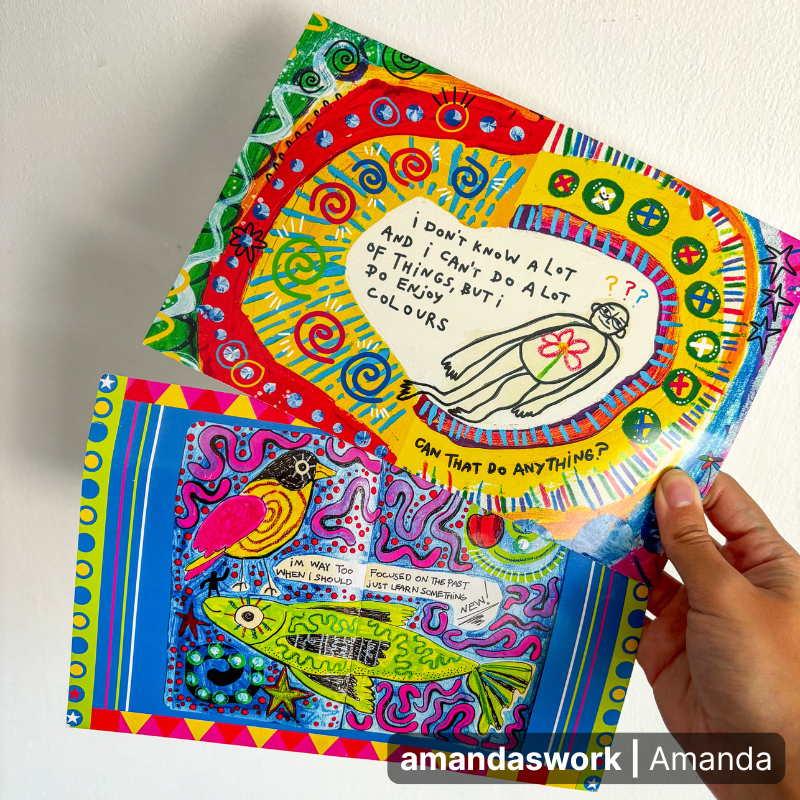 i DON'T KNOW A LOT
AND i CAN'T DO A LOT
OF THINGS, BUT i
DO ENJOY
COLOURS
? ? ?
CAN THAT DO ANYTHING?
iM WAY TOO
WHEN i SHOULD
FOCUSED ON THE PAST
JUST LEARN SOMETHING
NEW!
amandaswork | Amanda